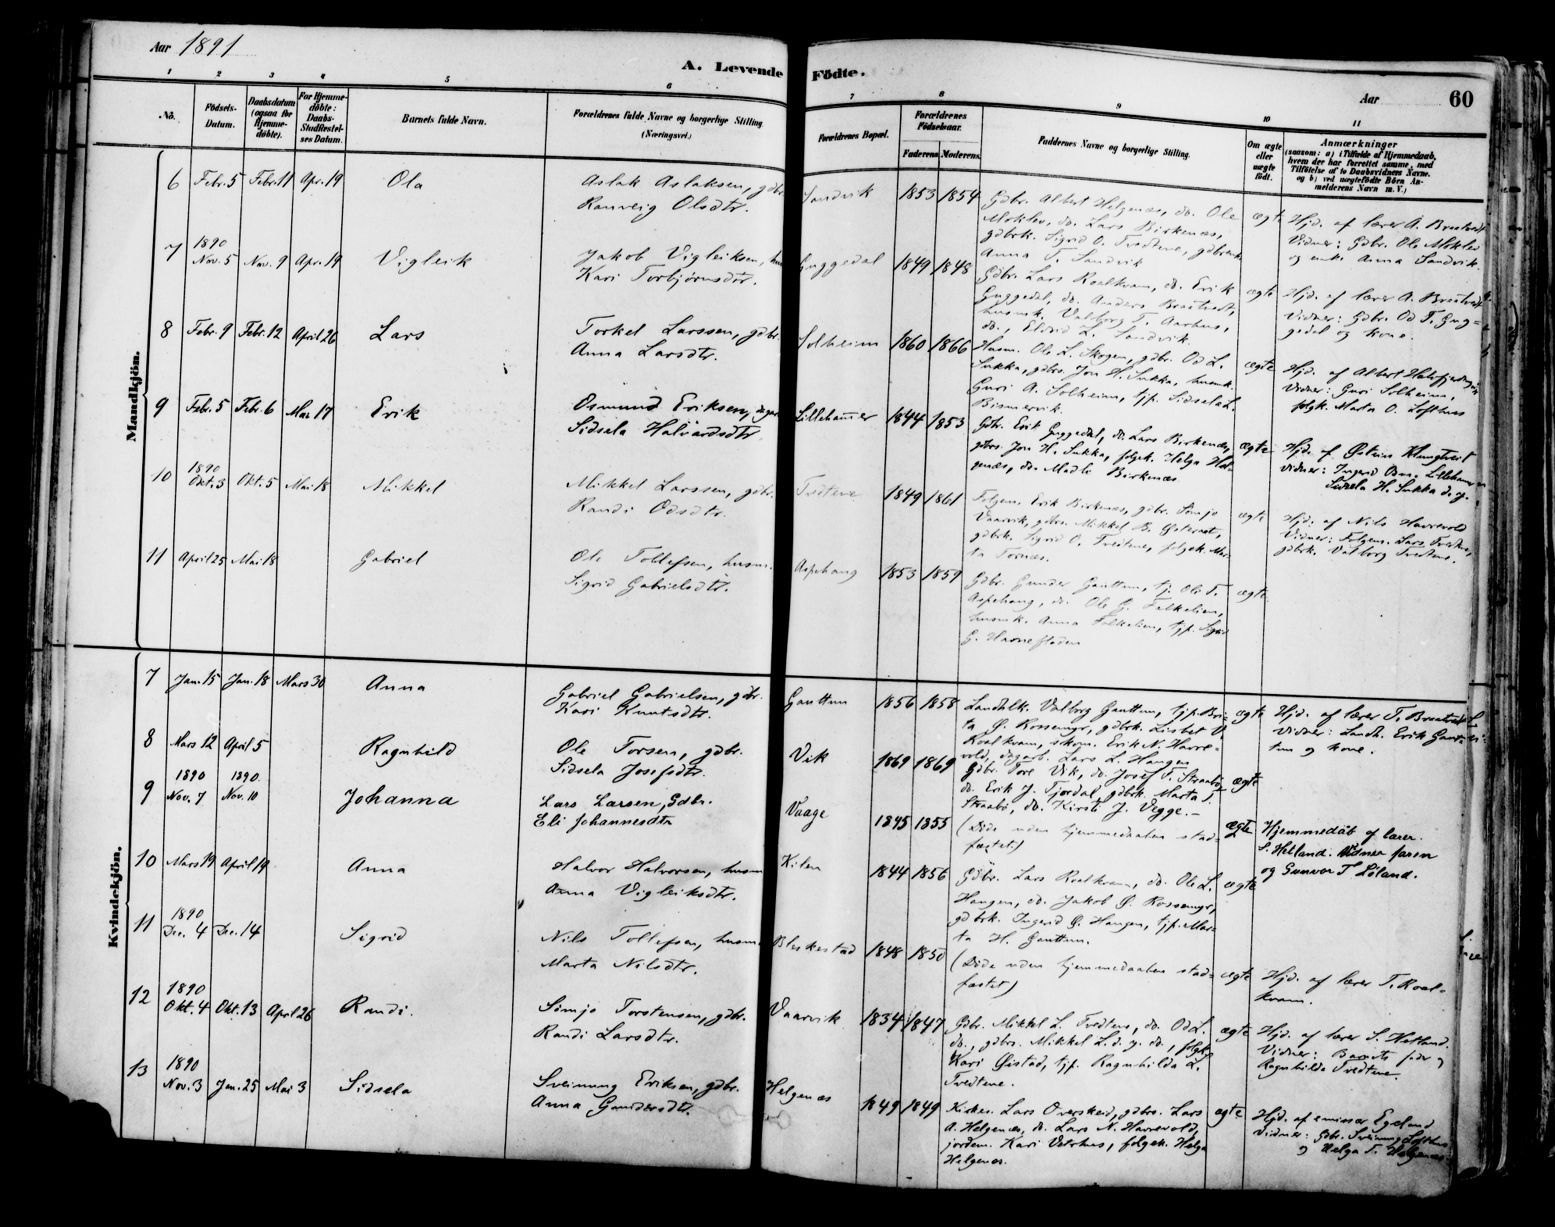 Aar 1891
A. Levende Födte.
Aar
60
1 2 3 4 5 6 7 8 9 10 11
No.
Födsels-Datum.
Daabsdatum (ogsaa for Hjemmedöbte).
For Hjemmedöbte: Daabs-Stadfæstelses Datum.
Barnets fulde Navn.
Forældrenes fulde Navne og borgerlige Stilling (Næringsvei.)
Forældrenes Bopæl.
Forældrenes Födselsaar.
Faderens Moderens
Faddernes Navne og borgerlige Stilling.
Om ægte eller uægte født.
Anmærkninger
(saasom: a) i Tilfælde af Hjemmedaab, hvem der har forrettet samme, med Tilföielse af to Daabsvidners Navne, og b) ved uægtefödte Börn Anmelderens Navn m. V.)
Mandkjön.
6 Febr. 5 Febr. 11 Apr. 19 Ola
Aslak Aslaksen, gdbr.
Ranveig Olsdtr.
Sandvik 1853 1854
Gdbr. Albert Helgenæs, do. Ole
Moklev, do. Lars Birkenæs,
gdbrk. Sigrid O. Tvedtene, gdbrenk.
Anna T. Sandvik
ægte
Hjd. af lærer A. Brestvedt
Vidner: Gdbr. Ole Moklev
og enke Anna Sandvik.
7 1890 Nov. 5 Nov. 9 Apr. 19 Vigleik
Jakob Vigleiksen,
Kari Torbjørnsdtr.
Guggedal 1849 1848
Gdbr. Lars Roalkvam, do. Erik
Guggedal, do. Anders Brestvedt,
husmk. Valborg T. Aarhus,
do., L. Sandvik.
ægte
Hjd. af lærer A. Brestvedt
Vidner: Gdbr. Od T. Gug-
gedal og kone.
8 Febr. 9 Febr. 12 April 26 Lars
Torkel Larssen, gdbr.
Anna Larsdtr.
Solheim 1860 1866
Husm. Ole L. Skogen, gdbr. Od L.
Sukka, gdbrs. Jon H. Sukka, husmk.
Guri A. Solheim, tjp. Sidsela L.
ægte
Hjd. af Albert
Vidner: Guri Solheim,
pigk. Marta O. Lofthus
9 Febr. 5 Febr. 6 Mai 17 Erik
Osmund Eriksen,
Sidsela Halvardsdtr.
Lillehammer 1844 1853
Gdbr. Erik Guggedal, do. Lars Birkenæs,
gdbrs. Jon H. Sukka, folgek. Helga Hel-
genæs, do. Madle Birkenæs
ægte
Hjd. af Østein Klungtvet
Vidner: Ingrid Osm. Lillehammer
Sidsela H. Sukka d. y.
10 1890 Okt. 3 Okt. 5 Mai 18 Mikkel
Mikkel Larssen, gdbr.
Randi Odsdtr.
Tvedtene 1849 1861
Folgem. Erik Birkenæs, gdbr. Simjo
Vaarvik, gdbrs. Mikkel B. Østernæs,
gdbrk. Sigrid O. Tvedtene, folgek. Mar-
ta Tornæs.
ægte
Hjd. af Nils Havrevold
Vidner: Folgem. Lars Tvedtene,
gdbrk. Valborg Tvedtene.
11 April 25 Mai 18 Gabriel
Ole Tollefsen, husm.
Sigrid Gabrielsdtr.
Aspehaug 1853 1859
Gdbr. Gunder Gauttun, tj. Ole T.
Aspehaug, do. Ole G. Falkelien,
husmk. Anna Falkelien, tjp. Sigri
G. Havnestøden
ægte
Kvindekjön.
7 Jan. 15 Jan. 18 Mars 30 Anna
Gabriel Gabrielsen, gdbr.
Kari Knutsdtr.
Gauttun 1856 1858
Landelk. Valborg Gauttun, tjp. Bri-
ta G. Rossemyr, gdbrk. Lisbet V.
Roalkvam, skom. Erik N. Havre-
vold, dagarb. Lars L. Haugen
ægte
Hjd. af lærer T. Brestvedt
Vidner: Landh. Erik Gaut-
tun og kone.
8 Mars 12 April 5 Ragnhild
Ole Torsen, gdbr.
Sidsela Josefsdtr.
Vik 1869 1869
Gdbr. Tore Vik, do. Josef T. Straabø,
do. Erik J. Fjordal, gdbrk. Marta T.
Straabø, do. Kirsti J. Vegge.
ægte
9 1890 Nov. 7 1890 Nov. 10 Johanna
Lars Larsen, Gdbr.
Eli Johannesdtr
Vaage 1845 1855
(Døde uden hjemmedaaben stad-
fæstet)
ægte
Hjemmedøb af lærer
S. Hetland. Vidner faren
og Gunvor T. Løland.
10 Mars 19 April 19 Anna
Halvor Halvorsen, husm
Anna Vigleiksdtr.
Kilen 1844 1856
Gdbr. Lars Roalkvam, do. Ole L.
Haugen, do. Jakob G. Rossemyr,
gdbrk. Ingerid G. Haugen, tjp. Mar-
ta H. Gauttun.
ægte
11 1890 Dec. 4 Dec. 14 Sigrid
Nils Tollefsen, husm.
Marta Nilsdtr.
Bleskestad 1848 1850
(Døde uden hjemmedaaben stad-
fæstet)
ægte
Hjd. af lærer T. Roal-
kvam.
12 1890 Okt. 4 Okt. 13 April 26 Randi.
Simjo Torstensen, gdbr.
Randi Larsdtr.
Vaarvik 1834 1847
Gdbr. Mikkel L. Tvedtene, do. Od L.
do., gdbrs. Mikkel L. d. y. do., folgk.
Kari Øistad, tjp. Ragnhilda L.
Tvedtene.
ægte
Hjd. af lærer S. Hetland.
Vidner: Barnets fader og
Ragnhilda Tvedtene.
13 1890 Nov. 3 Jan. 25 Mai 3 Sidsela
Sveinung Eriksen, gdbr.
Anna Gundersdtr.
Helgenæs 1849 1849
Kirkes. Lars Overskeid, gdbrs. Lars
A. Helgenæs, do. Lars N. Havrevold,
jordem. Kari Vetrhus, folgek. Helga
Helgenæs.
ægte
Hjd. af emissær Egeland
Vidner: Gdbr. Sveinung Lofthus
og Helga T. Helgenæs.